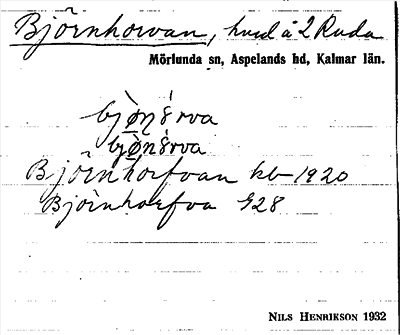 Björnhorvan, hmd å 2 Ruda
Mörlunda sn, Aspelands hd, Kalmar län.
bjø̀ṇórva
bjø̀ṇórva
Björnhorfvan kb 1920
Björnhorfva 928
NILS HENRIKSON 1932